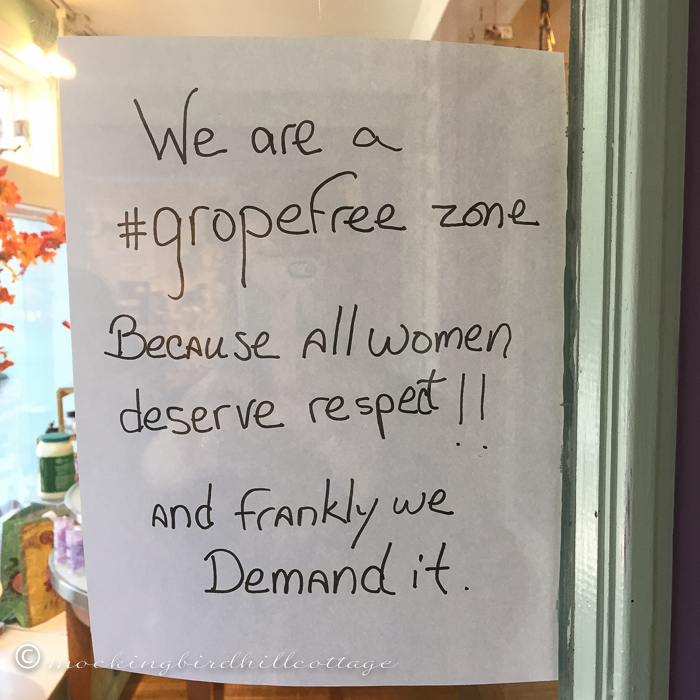 We are a
#gropefree zone
Because all women
deserve respect!!
and frankly we
Demand it.
© mockingbirdhillcottage